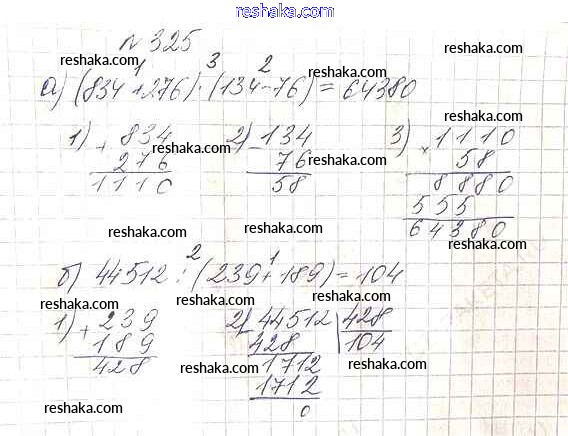 reshaka.com
№ 325
reshaka.com
1 3 2
а) (834+276)·(134-76)=64380
reshaka.com
1) + 834 2) - 134 3) × 1110
reshaka.com
276 76 58
reshaka.com
1110 58 8880
reshaka.com
555
64380
reshaka.com
reshaka.com
2 1
б) 44512 : (239+189)=104
reshaka.com
reshaka.com
1) + 239 2) - 44512 | 428
reshaka.com
189 428 104
reshaka.com
428 1712
reshaka.com
1712
reshaka.com
0
reshaka.com
reshaka.com